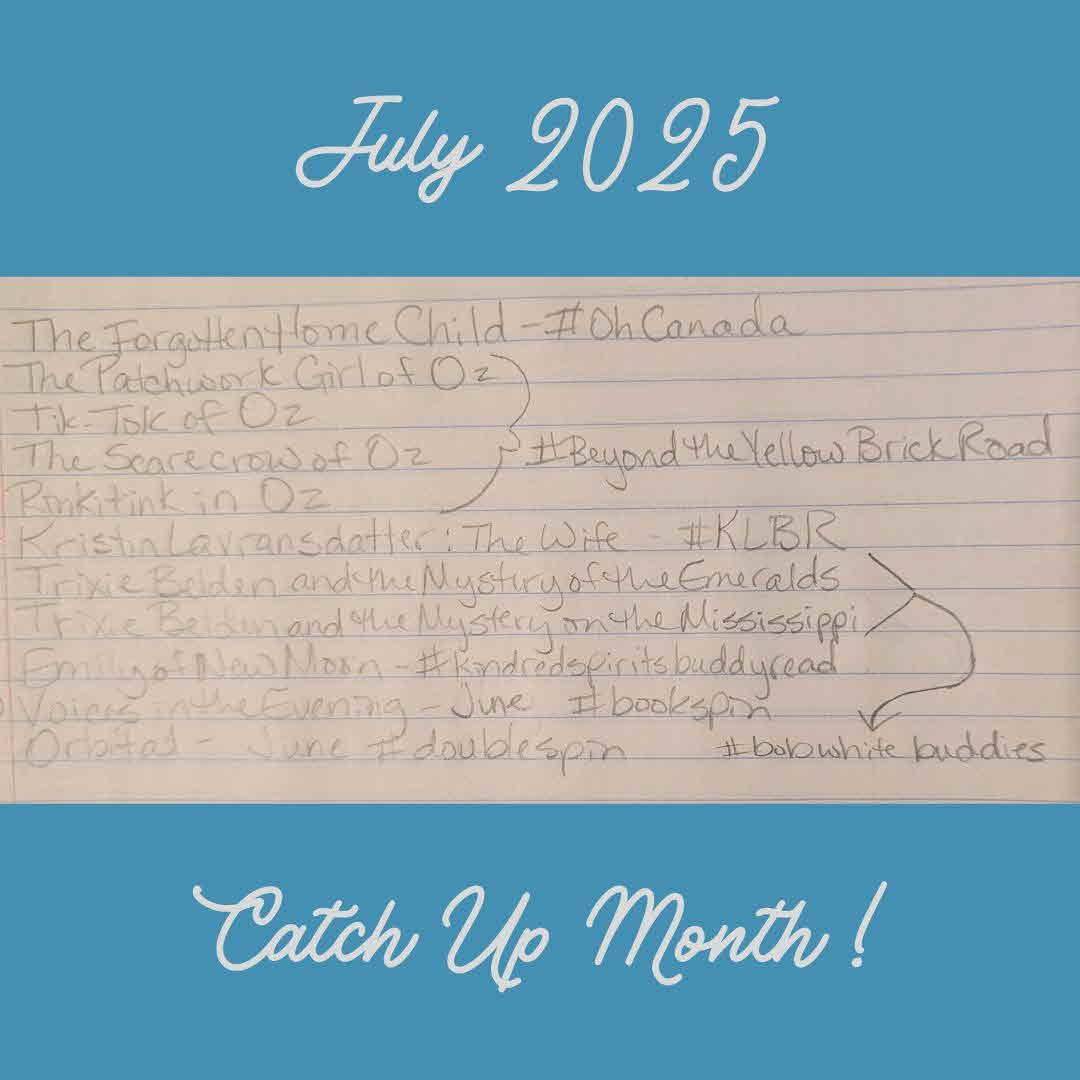 July 2025
The Forgotten Home Child - #OhCanada
The Patchwork Girl of Oz
Tik-Tok of Oz
The Scarecrow of Oz
#BeyondtheYellowBrickRoad
Rinkitink in Oz
Kristin Lavransdatter: The Wife - #KLBR
Trixie Belden and the Mystery of the Emeralds
Trixie Belden and the Mystery on the Mississippi
Emily of New Moon - #kindredspiritsbuddyread
Voices in the Evening - June #bookspin
Orbital - June #doublespin
#bobwhitebuddies
Catch Up Month!